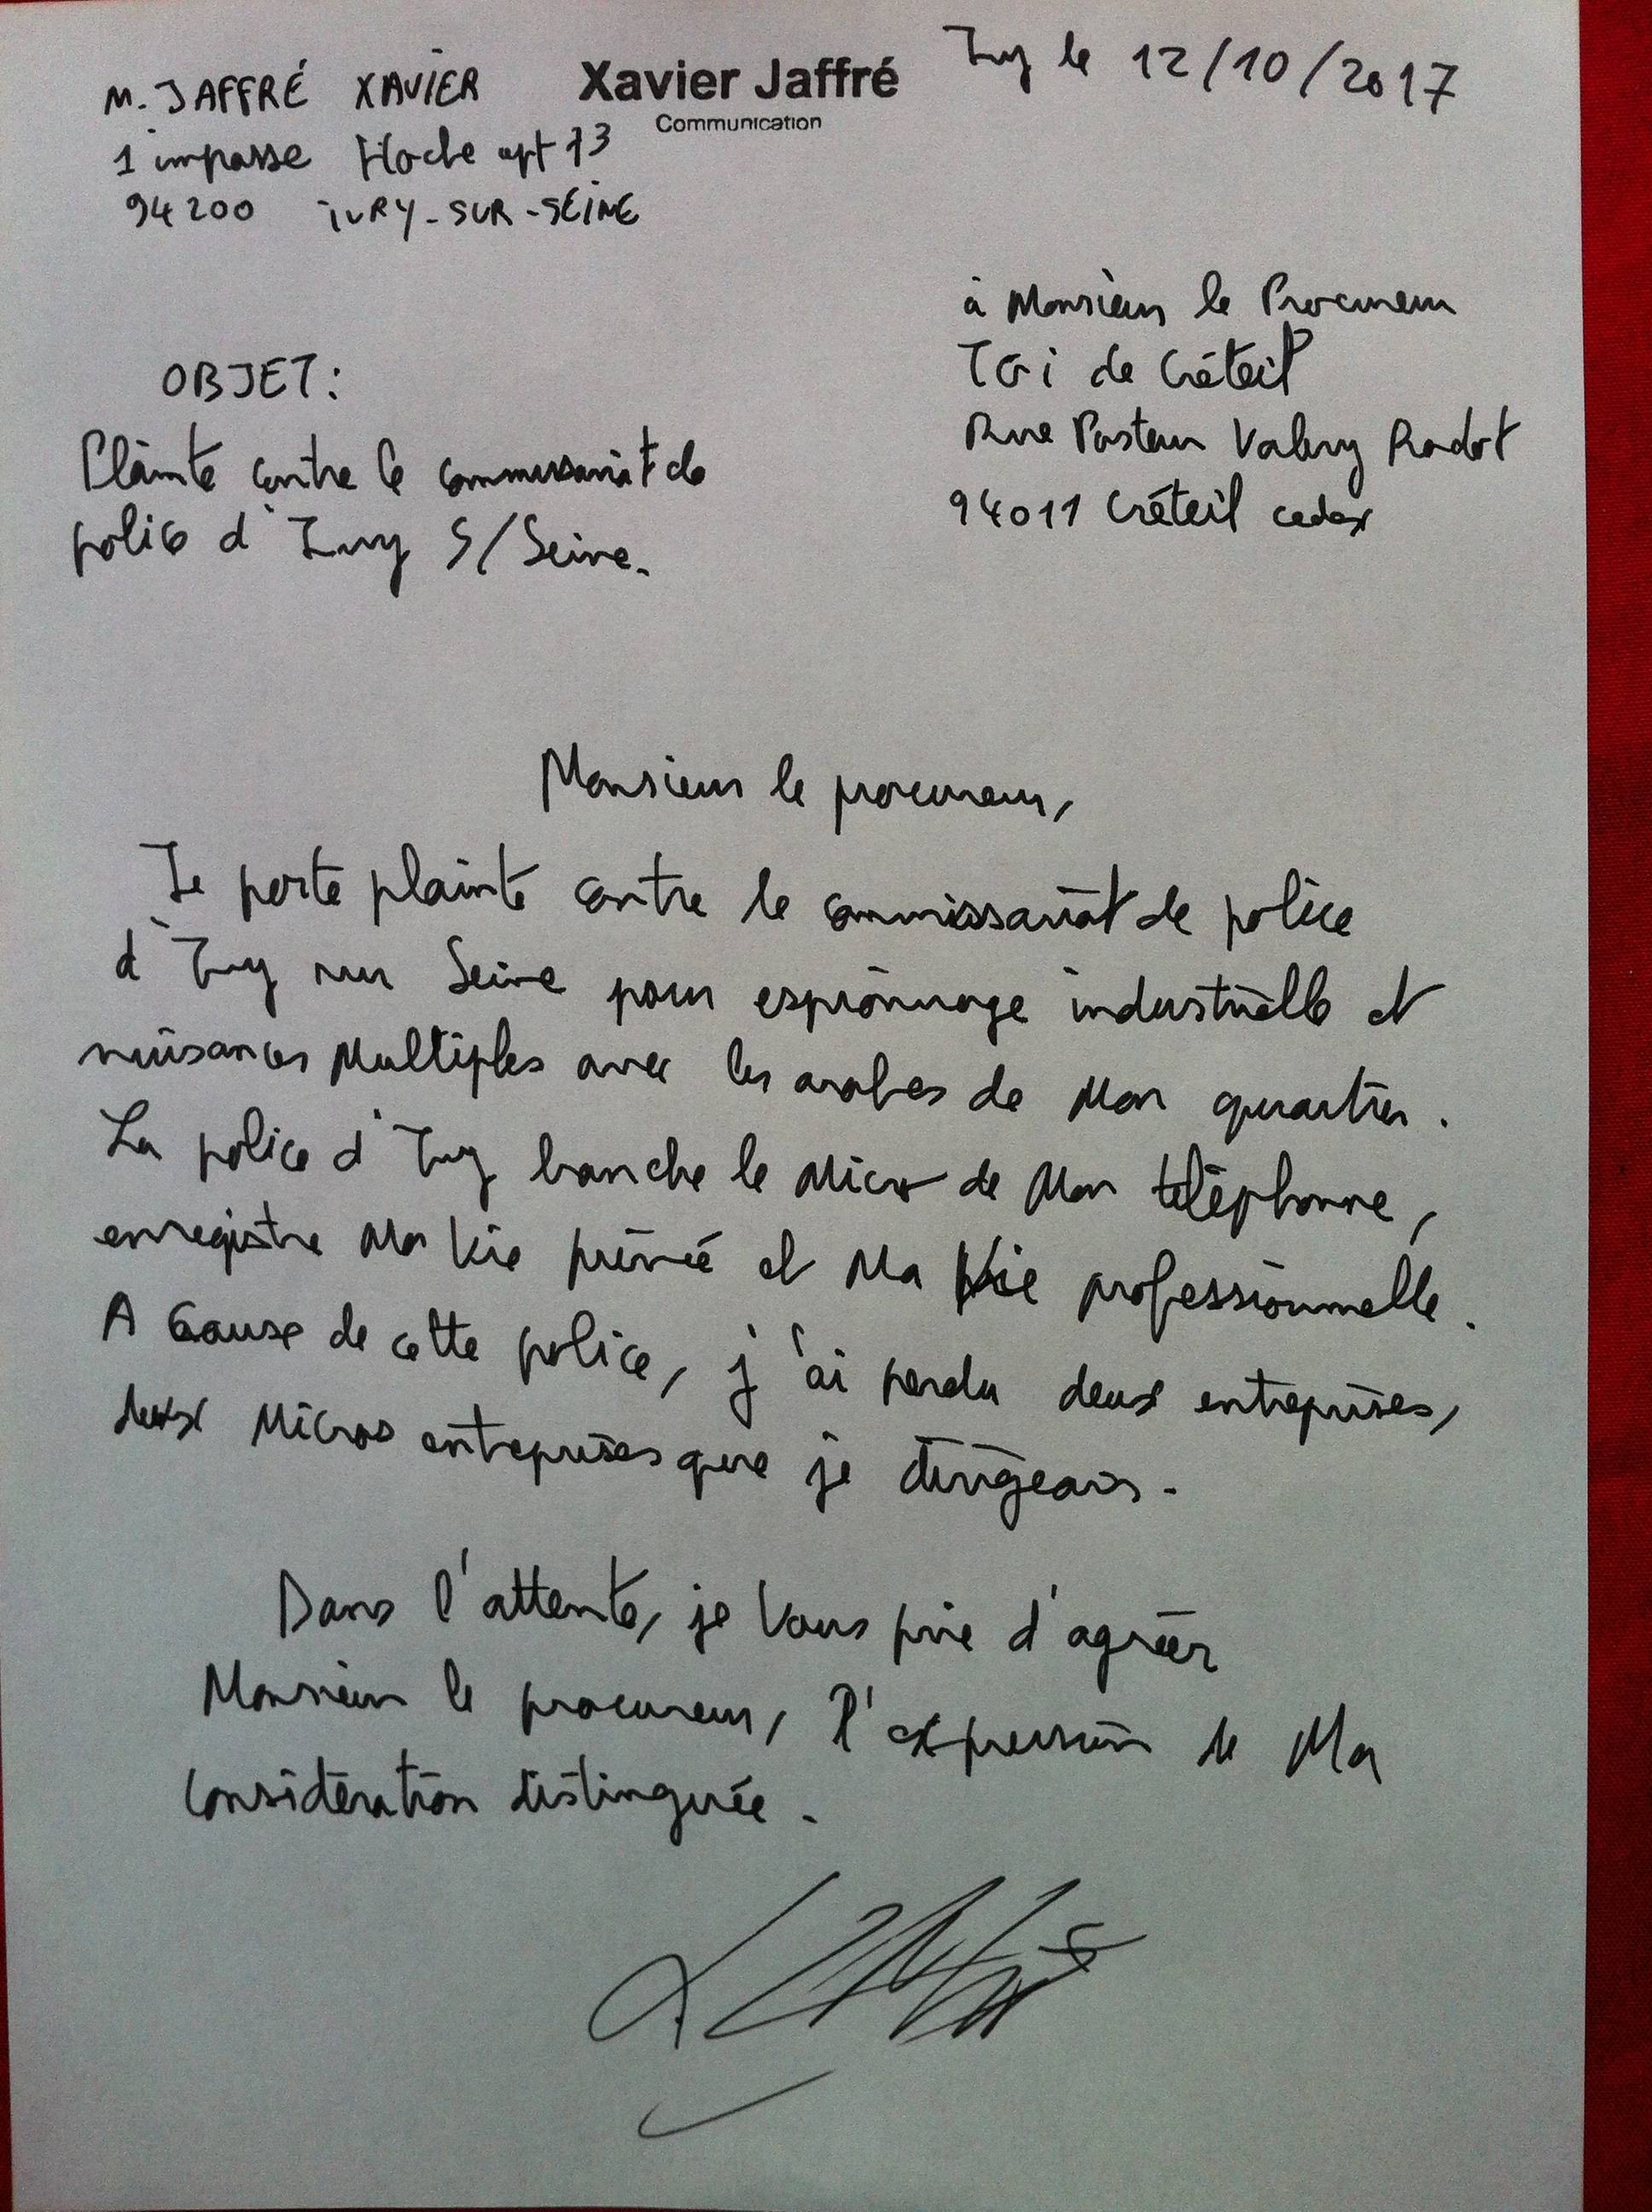 M. JAFFRÉ XAVIER
1 impasse Hoche apt 13
94200 IVRY-SUR-SEINE
Xavier Jaffré
Communication
Ivry le 12/10/2017
à Monsieur le Procureur
TGi de Créteil
Rue Pasteur Valery Radot
94011 Créteil cedex
OBJET:
Plainte contre le commissariat de
police d'Ivry S/Seine.
Monsieur le procureur,
Je porte plainte contre le commissariat de police
d'Ivry sur Seine pour espionnage industrielle et
nuisances Multiples avec les arabes de Mon quartier.
La police d'Ivry branche le Micro de Mon téléphone,
enregistre Ma vie privée et Ma vie professionnelle.
A cause de cette police, j'ai perdu deux entreprises,
deux Micros entreprises que je dirigeais.
Dans l'attente, je vous prie d'agréer
Monsieur le procureur, l'expression de Ma
considération distinguée.